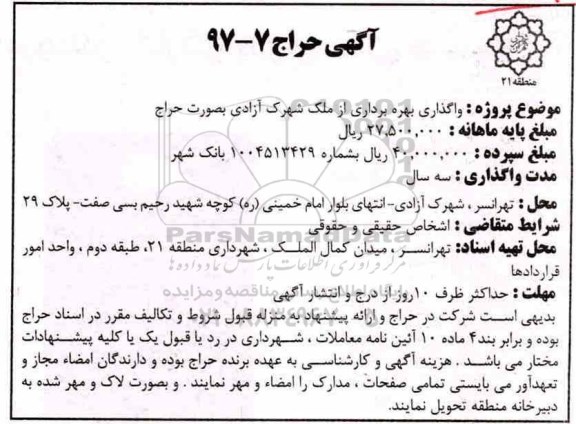 آگهی حراج ۷-۹۷
منطقه ۲۱
موضوع پروژه : واگذاری بهره برداری از ملک شهرک آزادی بصورت حراج
مبلغ پایه ماهانه : ۲۷,۵۰۰,۰۰۰ ریال
مبلغ سپرده : ۴۰,۰۰۰,۰۰۰ ریال بشماره ۱۰۰۴۵۱۳۴۲۹ بانک شهر
مدت واگذاری : سه سال
محل : تهرانسر ، شهرک آزادی- انتهای بلوار امام خمینی (ره) کوچه شهید رحیم بسی صفت- پلاک ۲۹
شرایط متقاضی : اشخاص حقیقی و حقوقی
محل تهیه اسناد: تهرانسر ، میدان کمال الملک ، شهرداری منطقه ۲۱، طبقه دوم ، واحد امور
قراردادها
مهلت : حداکثر ظرف ۱۰روز از درج و انتشار آگهی
بدیهی است شرکت در حراج و ارائه پیشنهاد به منزله قبول شروط و تکالیف مقرر در اسناد حراج
بوده و برابر بند۴ ماده ۱۰ آئین نامه معاملات ، شهرداری در رد یا قبول یک یا کلیه پیشنهادات
مختار می باشد . هزینه آگهی و کارشناسی به عهده برنده حراج بوده و دارندگان امضاء مجاز و
تعهدآور می بایستی تمامی صفحات ، مدارک را امضاء و مهر نمایند . و بصورت لاک و مهر شده به
دبیرخانه منطقه تحویل نمایند.
ParsNamadData